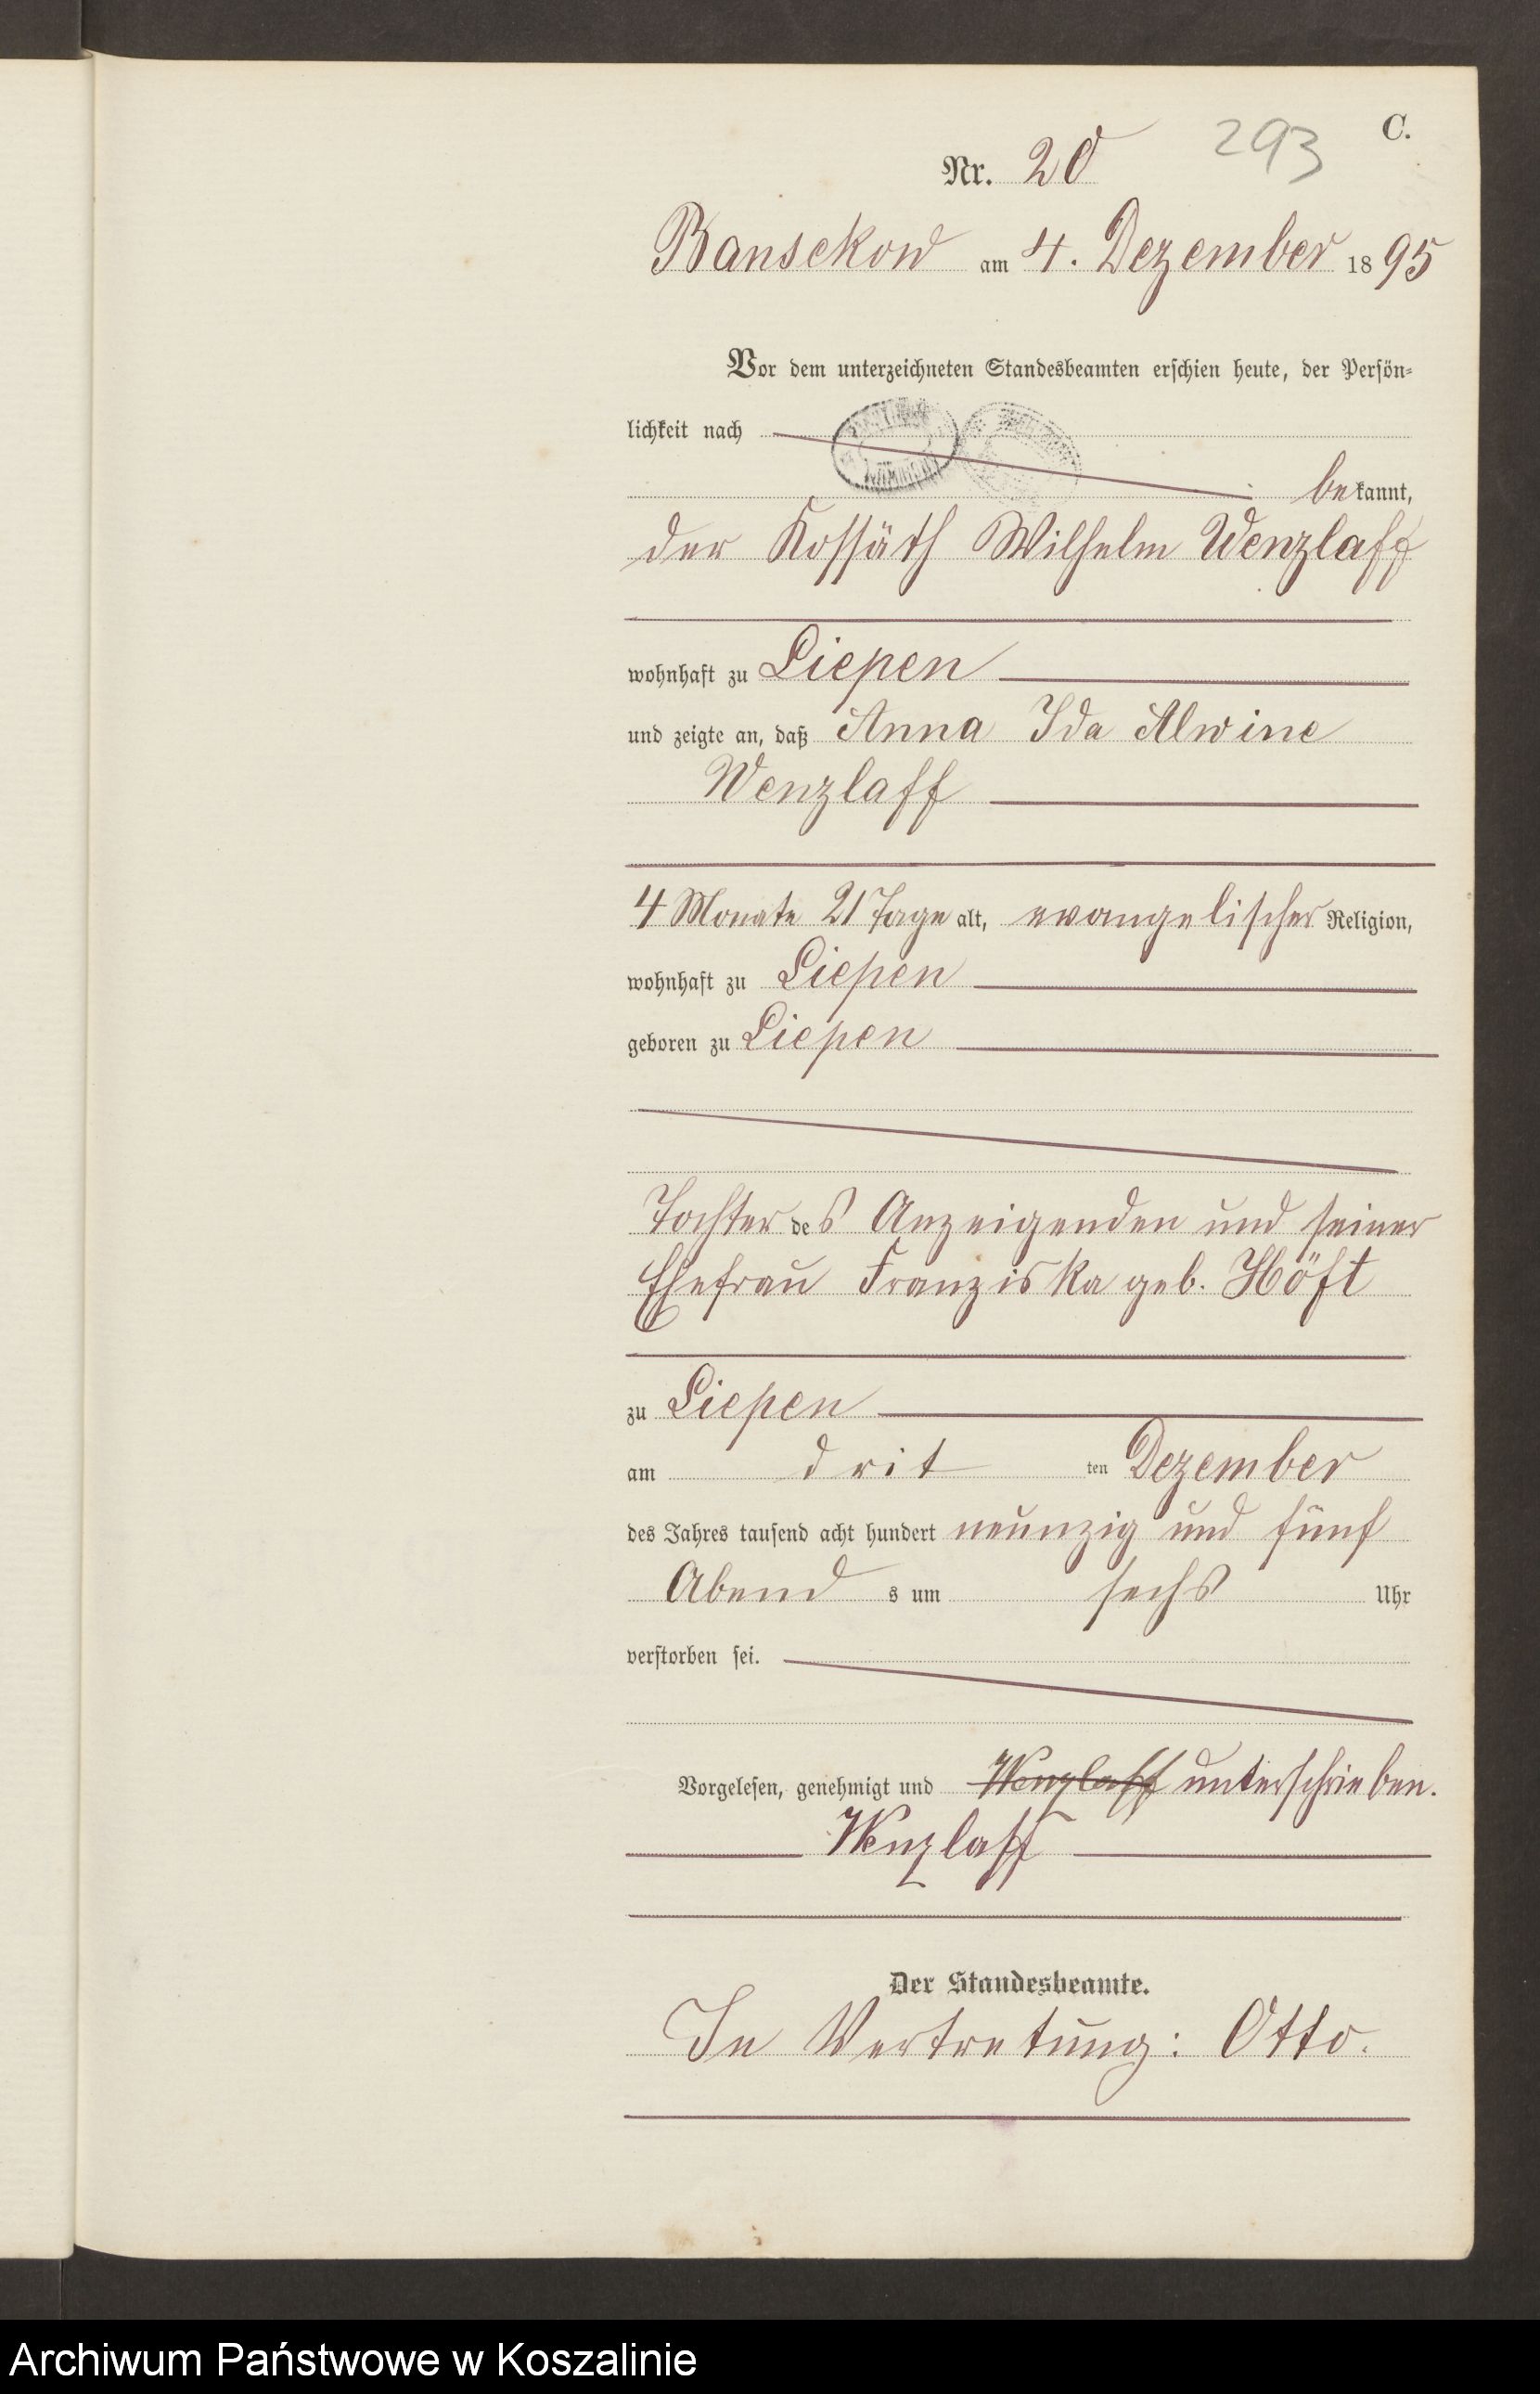 293
C.
Nr. 20
Bansekow am 4. Dezember 1895
Vor dem unterzeichneten Standesbeamten erschien heute, der Persön-
lichkeit nach
bekannt,
der Kossäth Wilhelm Wenzlaff
wohnhaft zu Liepen
und zeigte an, daß Anna Ida Alwine
Wenzlaff
4 Monate 21 Tage alt, evangelischer Religion,
wohnhaft zu Liepen
geboren zu Liepen
Tochter des Anzeigenden und seiner
Ehefrau Franziska geb. Höft
zu Liepen
am dritten Dezember
des Jahres tausend acht hundert neunzig und fünf
Abends um sechs Uhr
verstorben sei.
Vorgelesen, genehmigt und Wenzlaff unterschrieben.
Wenzlaff
Der Standesbeamte.
In Vertretung: Otto.
Archiwum Państwowe w Koszalinie